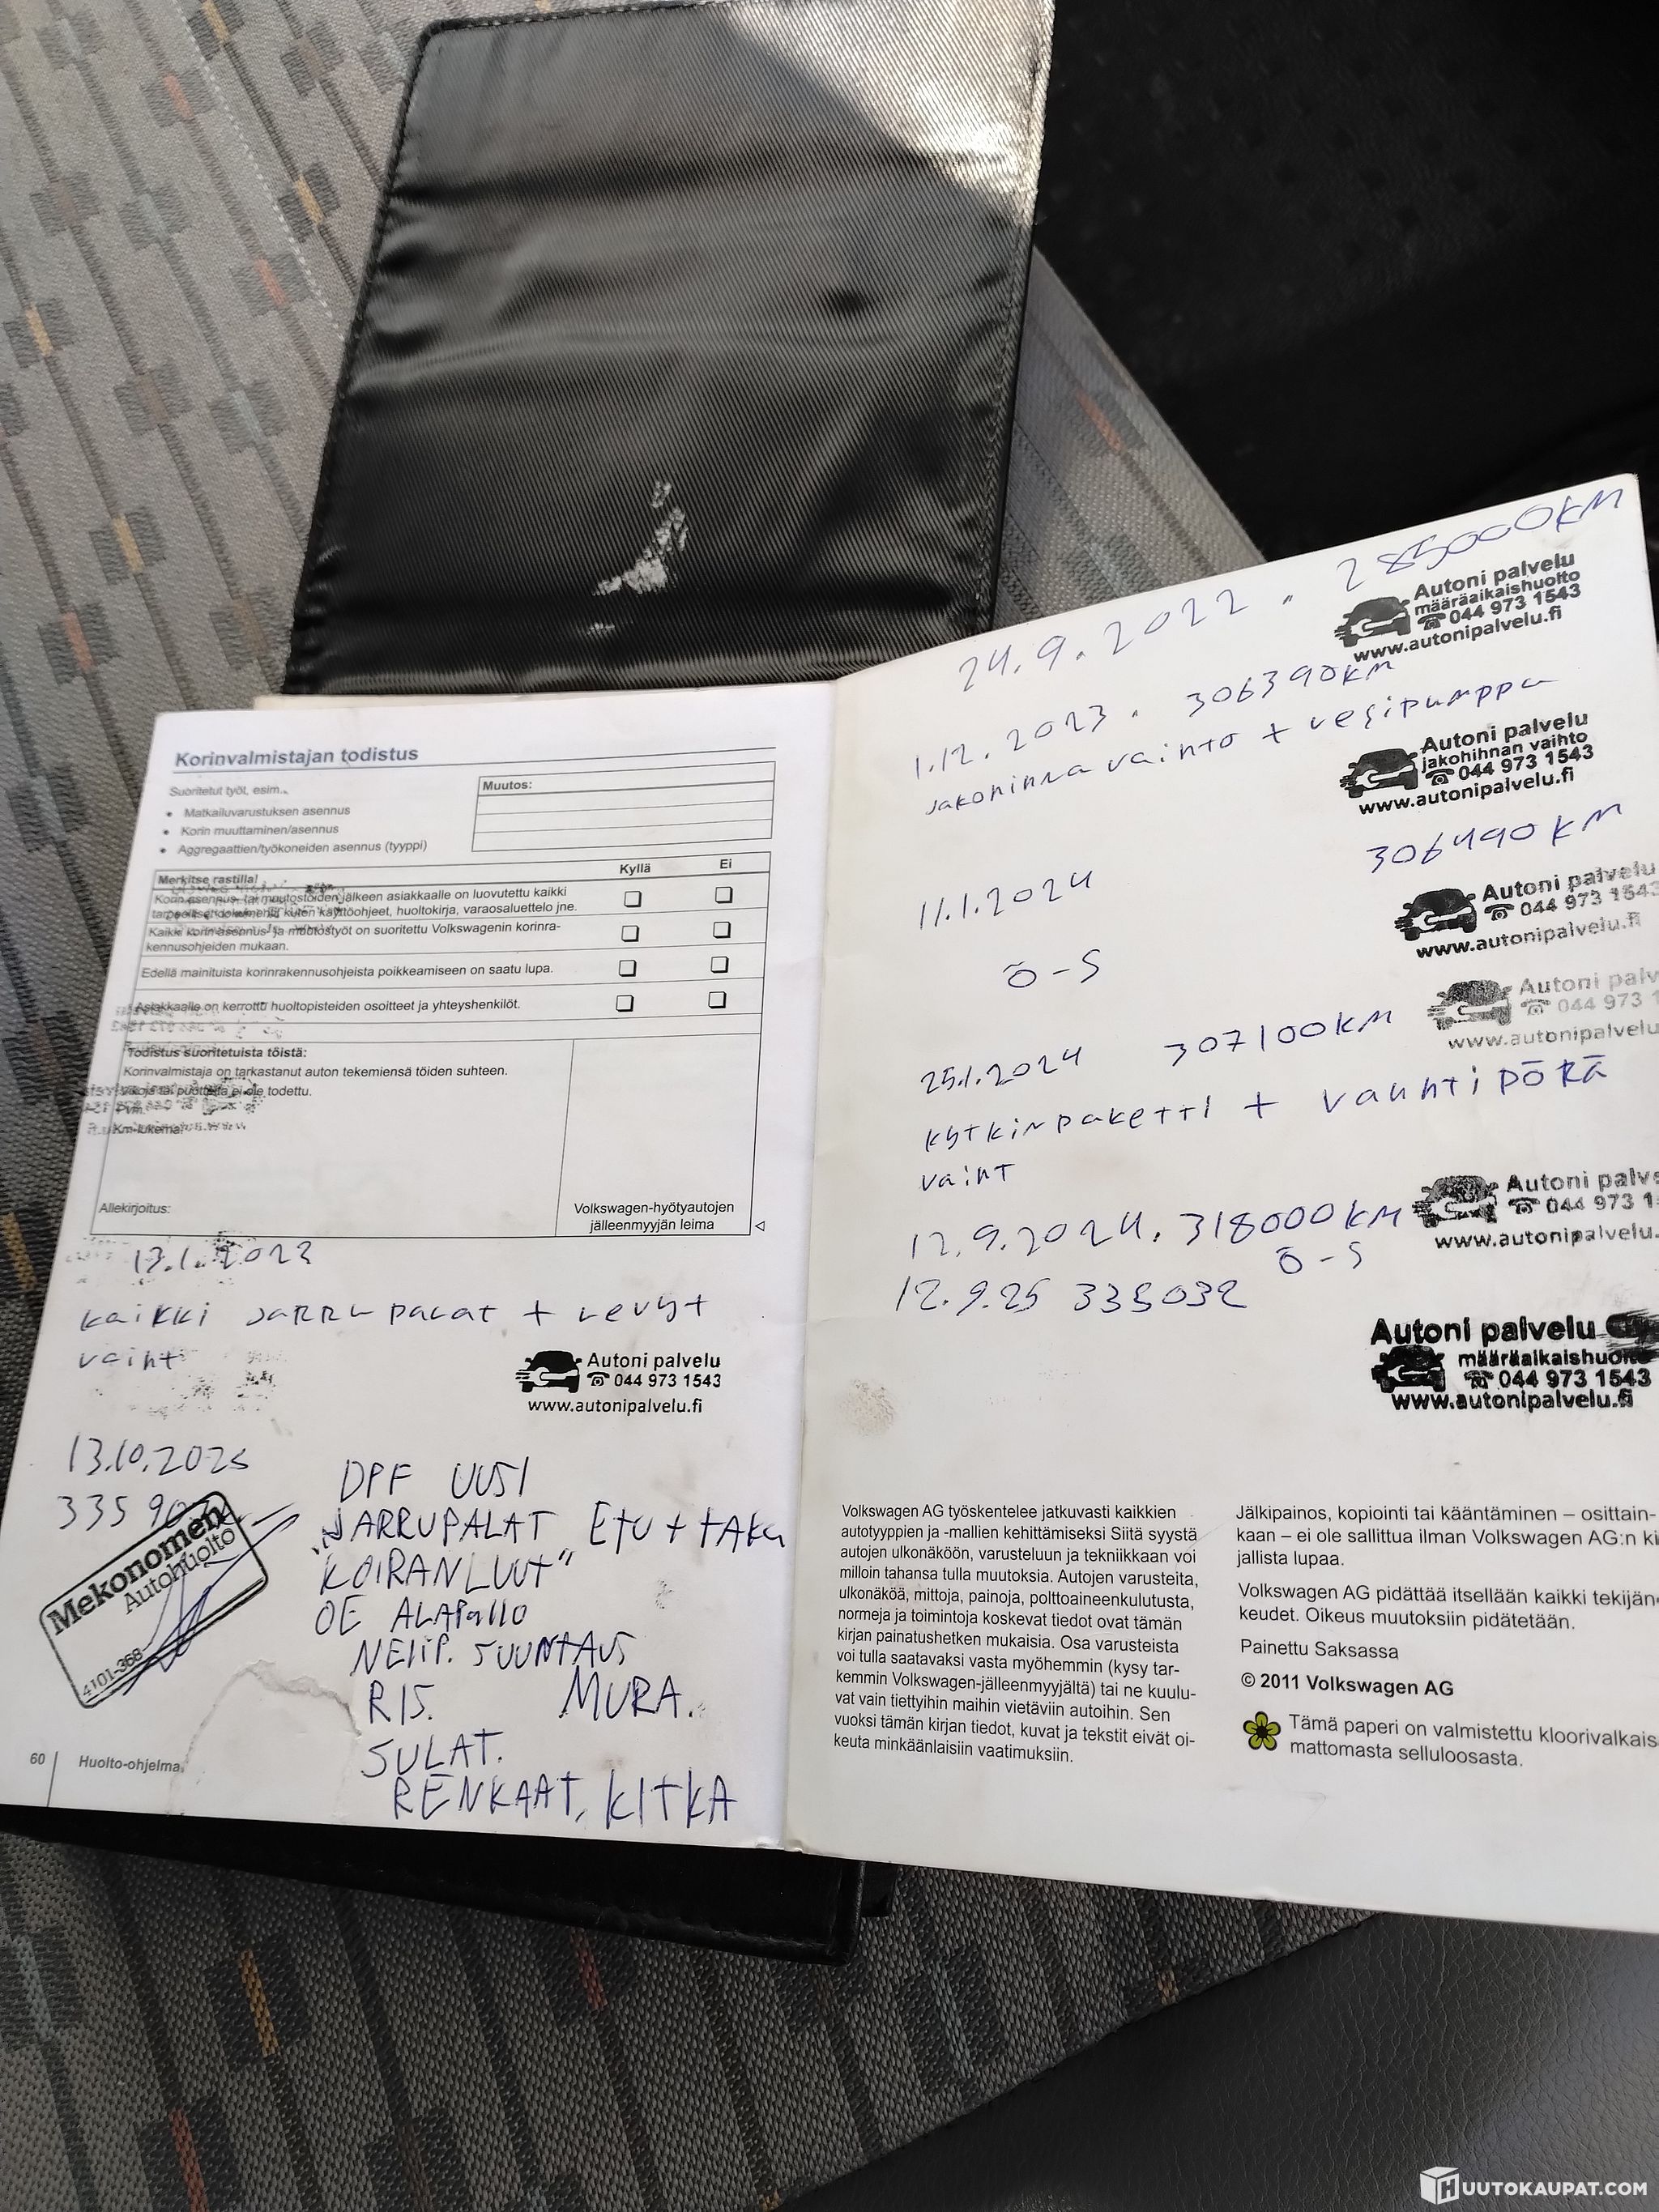 Korinvalmistajan todistus
Suoritetut työt, esim.
• Matkailuvarustuksen asennus
• Korin muuttaminen/asennus
• Aggregaattien/työkoneiden asennus (tyyppi)
Muutos:
Merkitse rastilla!
Kyllä
Ei
Korin asennus- tai muutostöiden jälkeen asiakkaalle on luovutettu kaikki
tarpeelliset dokumentit kuten käyttöohjeet, huoltokirja, varaosaluettelo jne.
Kaikki korin asennus- ja muutostyöt on suoritettu Volkswagenin korinra-
kennusohjeiden mukaan.
Edellä mainituista korinrakennusohjeista poikkeamiseen on saatu lupa.
Asiakkaalle on kerrottu huoltopisteiden osoitteet ja yhteyshenkilöt.
Todistus suoritetuista töistä:
Korinvalmistaja on tarkastanut auton tekemiensä töiden suhteen.
Vikoja tai puutteita ei ole todettu.
Pvm.
Km-lukema:
Allekirjoitus:
Volkswagen-hyötyautojen
jälleenmyyjän leima
13.1.2023
kaikki jarru palat + levyt
vaiht
Autoni palvelu
044 973 1543
www.autonipalvelu.fi
13.10.2025
Mekonomen
Autohuolto
4101-368
DPF UUSI
JARRUPALAT Etu + tAKA
"KOIRANLUUt"
OE ALAPallo
NELIP. SUUNtAUS
R15. MURA.
SULAT.
RENKAAT, KITKA
60
Huolto-ohjelma
24.9.2022. 285000KM
Autoni palvelu
määräaikaishuolto
044 973 1543
www.autonipalvelu.fi
1.12.2023. 306390KM
jakohinna vainto + vesipumppu
Autoni palvelu
jakohihnan vaihto
044 973 1543
www.autonipalvelu.fi
306490KM
11.1.2024
Autoni palvelu
044 973 1543
www.autonipalvelu.fi
Ö-S
Autoni palv
044 973 1
www.autonipalvelu
25.1.2024 307100KM
kytkinpaketti + vauhtipörä
vaiht
Autoni palve
044 973 1
www.autonipalvelu.
12.9.2024. 318000KM
Ö-S
12.9.25 335032
Autoni palvelu
määräaikaishuolto
044 973 1543
www.autonipalvelu.fi
Volkswagen AG työskentelee jatkuvasti kaikkien
autotyyppien ja -mallien kehittämiseksi Siitä syystä
autojen ulkonäköön, varusteluun ja tekniikkaan voi
milloin tahansa tulla muutoksia. Autojen varusteita,
ulkonäköä, mittoja, painoja, polttoaineenkulutusta,
normeja ja toimintoja koskevat tiedot ovat tämän
kirjan painatushetken mukaisia. Osa varusteista
voi tulla saatavaksi vasta myöhemmin (kysy tar-
kemmin Volkswagen-jälleenmyyjältä) tai ne kuulu-
vat vain tiettyihin maihin vietäviin autoihin. Sen
vuoksi tämän kirjan tiedot, kuvat ja tekstit eivät oi-
keuta minkäänlaisiin vaatimuksiin.
Jälkipainos, kopiointi tai kääntäminen – osittain-
kaan – ei ole sallittua ilman Volkswagen AG:n ki
jallista lupaa.
Volkswagen AG pidättää itsellään kaikki tekijän
keudet. Oikeus muutoksiin pidätetään.
Painettu Saksassa
© 2011 Volkswagen AG
Tämä paperi on valmistettu kloorivalkais
mattomasta selluloosasta.
HUUTOKAUPAT.COM